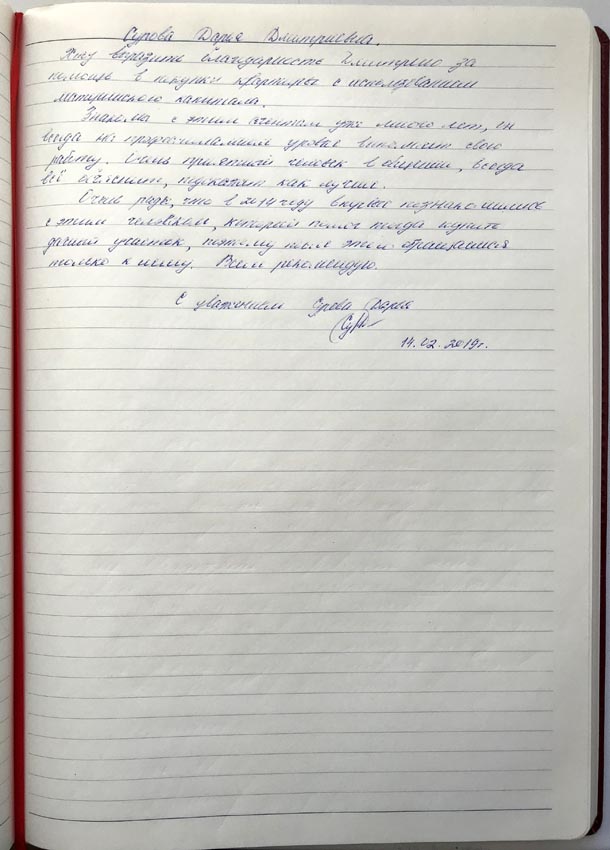 Сурова Дарья Дмитриевна.
Хочу выразить благодарность Дмитрию за
помощь в покупки квартиры с использованием
материнского капитала.
Знакома с этим агентом уже много лет, он
всегда на профессиональном уровне выполняет свою
работу. Очень приятный человек в общении, всегда
всё объяснит, подскажет как лучше.
Очень рада, что в 2014 году впервые познакомилась
с этим человеком, который помог тогда купить
дачный участок, поэтому после этого обращаемся
только к нему. Всем рекомендую.
С уважением Сурова Дарья
14.02.2019г.